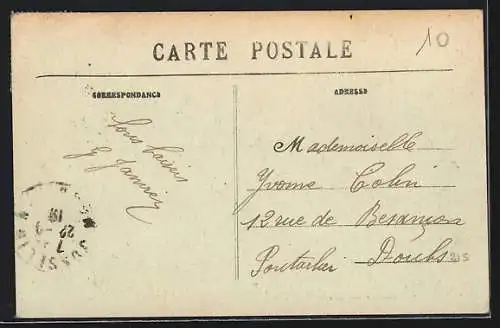 CARTE POSTALE
10
CORRESPONDANCE
ADRESSE
Bons baisers
Mademoiselle
Yvonne Colin
12 rue de Besançon
Pontarlier Doubs